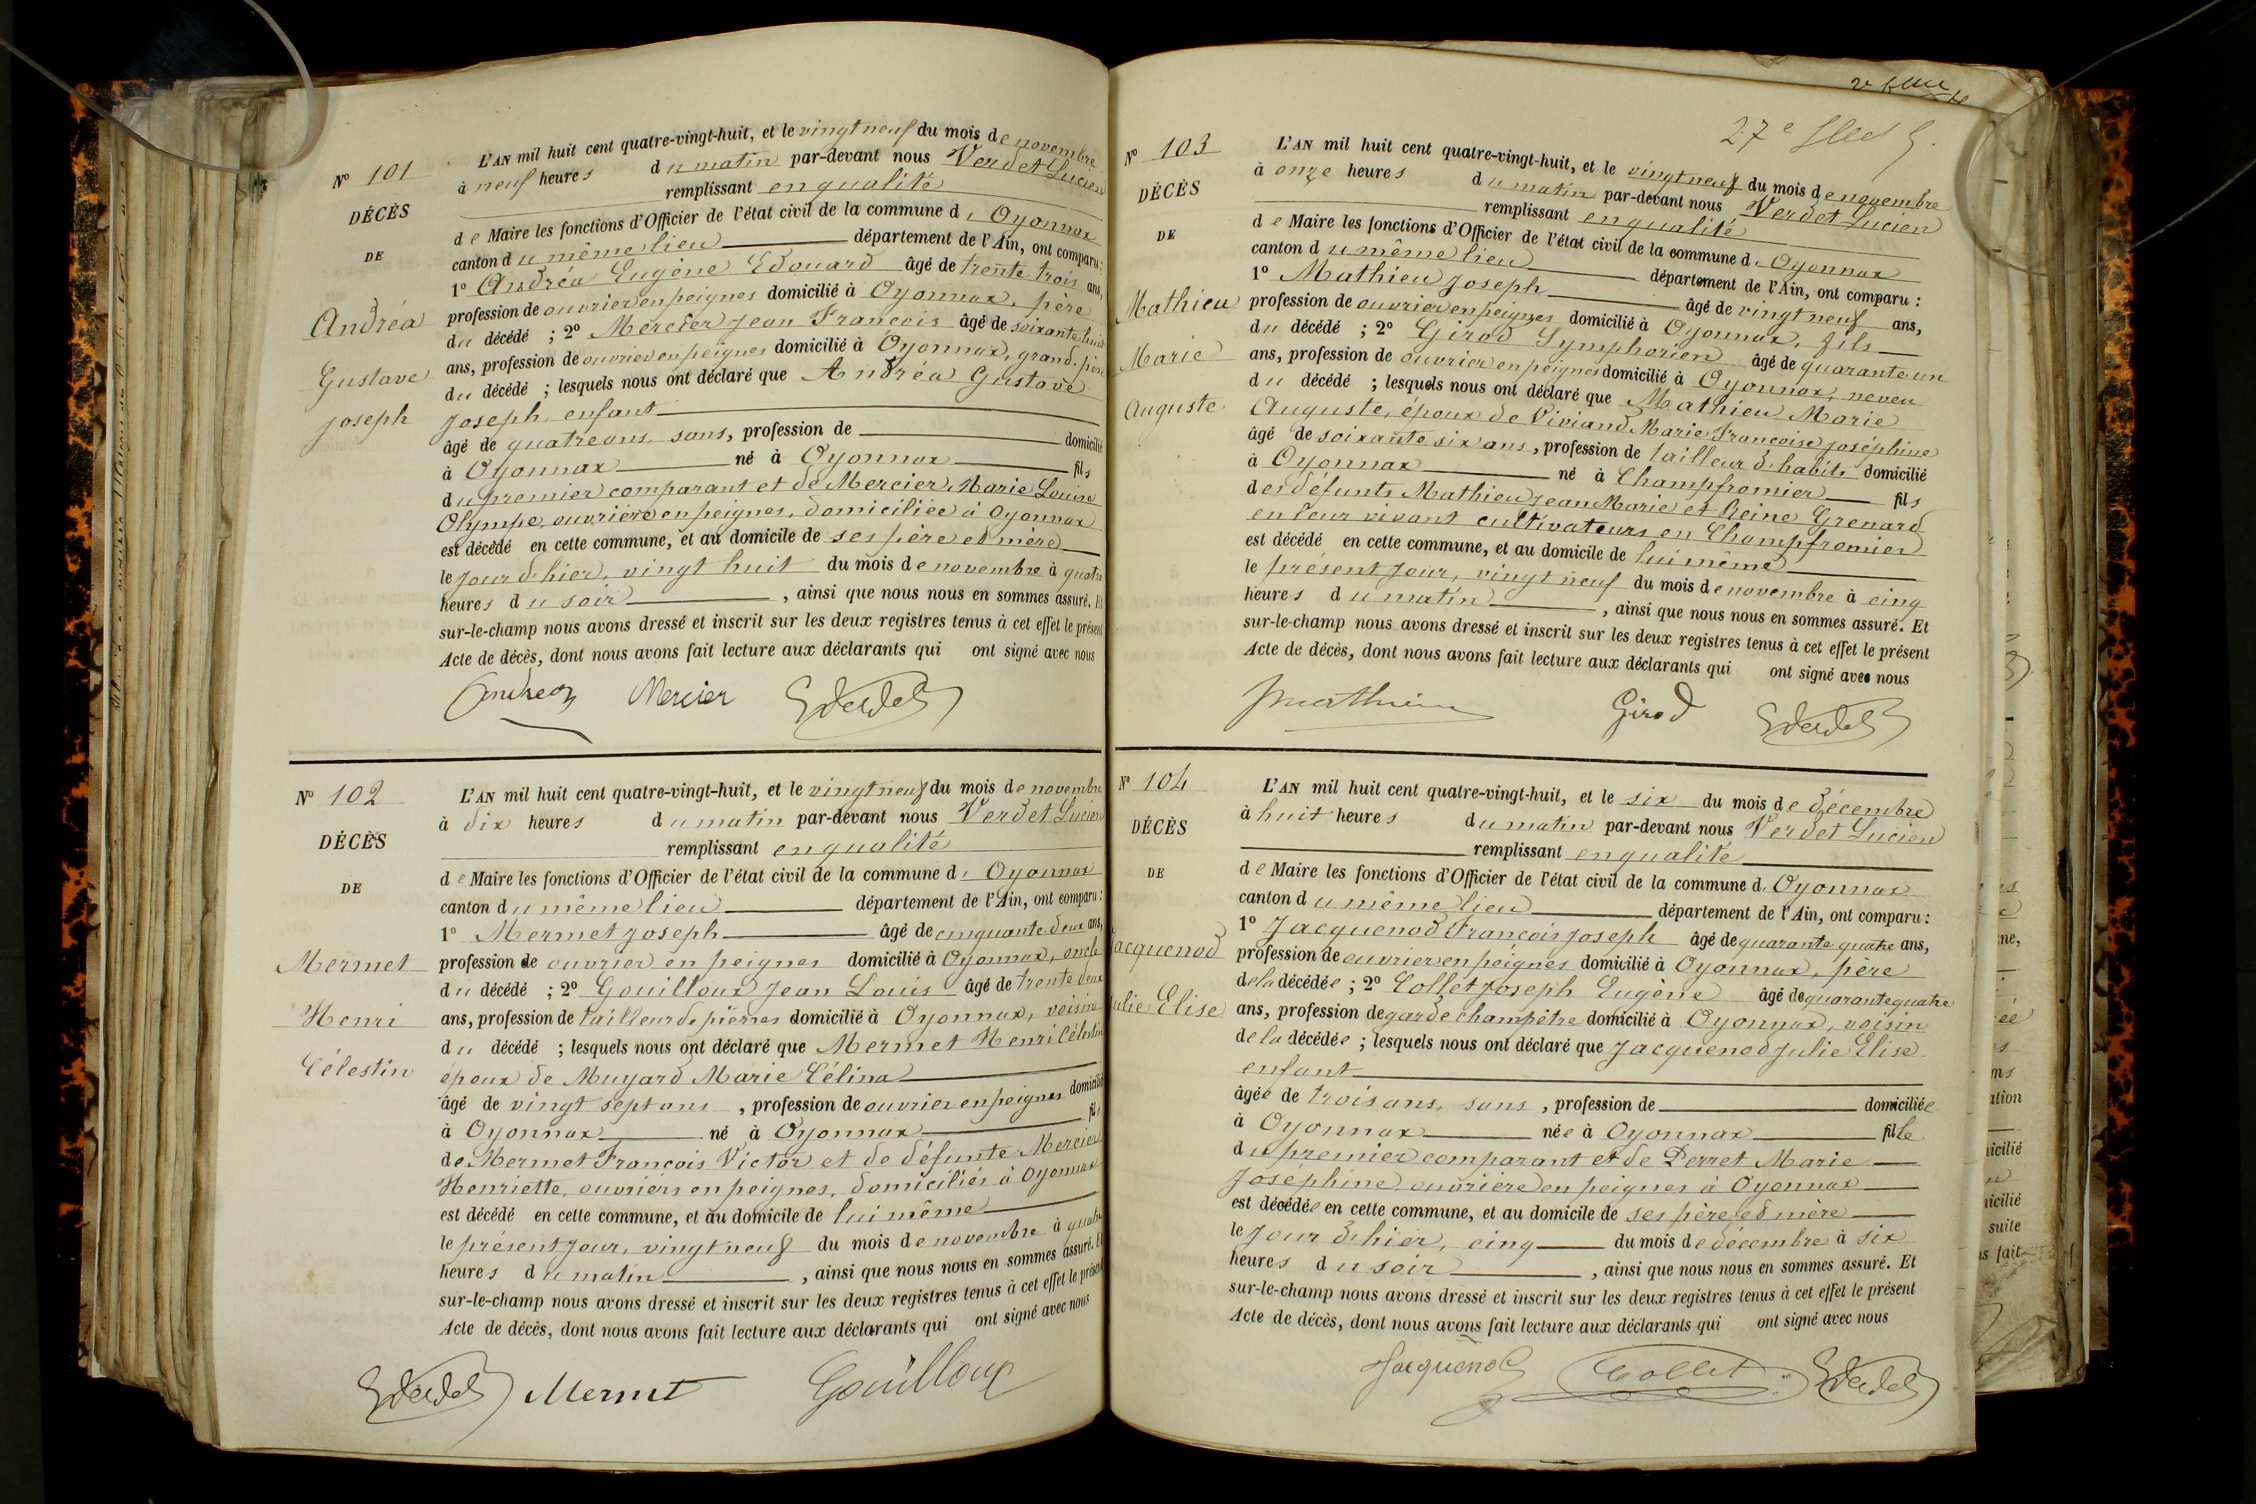 N° 101
DÉCÈS
DE
Andréa
Gustave
Joseph
L'AN mil huit cent quatre-vingt-huit, et le vingt neuf du mois de novembre
à neuf heures du matin par-devant nous Verdet Lucien
remplissant en qualité
de Maire les fonctions d'Officier de l'état civil de la commune d'Oyonnax
canton du même lieu département de l'Ain, ont comparu :
1° Andréa Eugène Edouard âgé de trente trois ans,
profession de ouvrier en peignes domicilié à Oyonnax, père
du décédé ; 2° Mercier Jean François âgé de soixante huit
ans, profession de ouvrier en peignes domicilié à Oyonnax, grand-père
du décédé ; lesquels nous ont déclaré que Andréa Gustave
Joseph, enfant
âgé de quatre ans, sans, profession de domicilié
à Oyonnax né à Oyonnax fils
du premier comparant et de Mercier Marie Louise
Olympe, ouvrière en peignes, domiciliée à Oyonnax
est décédé en cette commune, et au domicile de ses père et mère
le jour d'hier, vingt huit du mois de novembre à quatre
heures du soir , ainsi que nous nous en sommes assuré. Et
sur-le-champ nous avons dressé et inscrit sur les deux registres tenus à cet effet le présent
Acte de décès, dont nous avons fait lecture aux déclarants qui ont signé avec nous
Andréa Mercier Verdet
N° 102
DÉCÈS
DE
Mermet
Henri
Célestin
L'AN mil huit cent quatre-vingt-huit, et le vingt neuf du mois de novembre
à dix heures du matin par-devant nous Verdet Lucien
remplissant en qualité
de Maire les fonctions d'Officier de l'état civil de la commune d'Oyonnax
canton du même lieu département de l'Ain, ont comparu :
1° Mermet Joseph âgé de cinquante deux ans,
profession de ouvrier en peignes domicilié à Oyonnax, oncle
du décédé ; 2° Gouilloux Jean Louis âgé de trente deux
ans, profession de tailleur de pierres domicilié à Oyonnax, voisin
du décédé ; lesquels nous ont déclaré que Mermet Henri Célestin
époux de Muyard Marie Célina
âgé de vingt sept ans , profession de ouvrier en peignes domicilié
à Oyonnax né à Oyonnax fils
de Mermet François Victor et de défunte Mercier
Henriette, ouvriers en peignes, domiciliés à Oyonnax
est décédé en cette commune, et au domicile de lui même
le présent jour, vingt neuf du mois de novembre à quatre
heures du matin , ainsi que nous nous en sommes assuré. Et
sur-le-champ nous avons dressé et inscrit sur les deux registres tenus à cet effet le présent
Acte de décès, dont nous avons fait lecture aux déclarants qui ont signé avec nous
Verdet Mermet Gouilloux
27e
N° 103
DÉCÈS
DE
Mathieu
Marie
Auguste
L'AN mil huit cent quatre-vingt-huit, et le vingt neuf du mois de novembre
à onze heures du matin par-devant nous Verdet Lucien
remplissant en qualité
de Maire les fonctions d'Officier de l'état civil de la commune d'Oyonnax
canton du même lieu département de l'Ain, ont comparu :
1° Mathieu Joseph âgé de vingt neuf ans,
profession de ouvrier en peignes domicilié à Oyonnax, fils
du décédé ; 2° Girod Symphorien âgé de quarante un
ans, profession de ouvrier en peignes domicilié à Oyonnax, neveu
du décédé ; lesquels nous ont déclaré que Mathieu Marie
Auguste, époux de Viviand Marie Françoise Joséphine
âgé de soixante six ans, profession de tailleur d'habits domicilié
à Oyonnax né à Champfromier fils
des défunts Mathieu Jean Marie et Reine Grenard
en leur vivant cultivateurs en Champfromier
est décédé en cette commune, et au domicile de lui même
le présent jour, vingt neuf du mois de novembre à cinq
heures du matin , ainsi que nous nous en sommes assuré. Et
sur-le-champ nous avons dressé et inscrit sur les deux registres tenus à cet effet le présent
Acte de décès, dont nous avons fait lecture aux déclarants qui ont signé avec nous
Mathieu Girod Verdet
N° 104
DÉCÈS
DE
Jacquenod
Julie Elise
L'AN mil huit cent quatre-vingt-huit, et le six du mois de décembre
à huit heures du matin par-devant nous Verdet Lucien
remplissant en qualité
de Maire les fonctions d'Officier de l'état civil de la commune d'Oyonnax
canton du même lieu département de l'Ain, ont comparu :
1° Jacquenod François Joseph âgé de quarante quatre ans,
profession de ouvrier en peignes domicilié à Oyonnax, père
de la décédée ; 2° Collet Joseph Eugène âgé de quarante quatre
ans, profession de garde champêtre domicilié à Oyonnax, voisin
de la décédée ; lesquels nous ont déclaré que Jacquenod Julie Elise
enfant
âgée de trois ans, sans , profession de domiciliée
à Oyonnax née à Oyonnax fille
du premier comparant et de Perret Marie
Joséphine, ouvrière en peignes à Oyonnax
est décédée en cette commune, et au domicile de ses père et mère
le jour d'hier, cinq du mois de décembre à six
heures du soir , ainsi que nous nous en sommes assuré. Et
sur-le-champ nous avons dressé et inscrit sur les deux registres tenus à cet effet le présent
Acte de décès, dont nous avons fait lecture aux déclarants qui ont signé avec nous
Jacquenod Collet Verdet